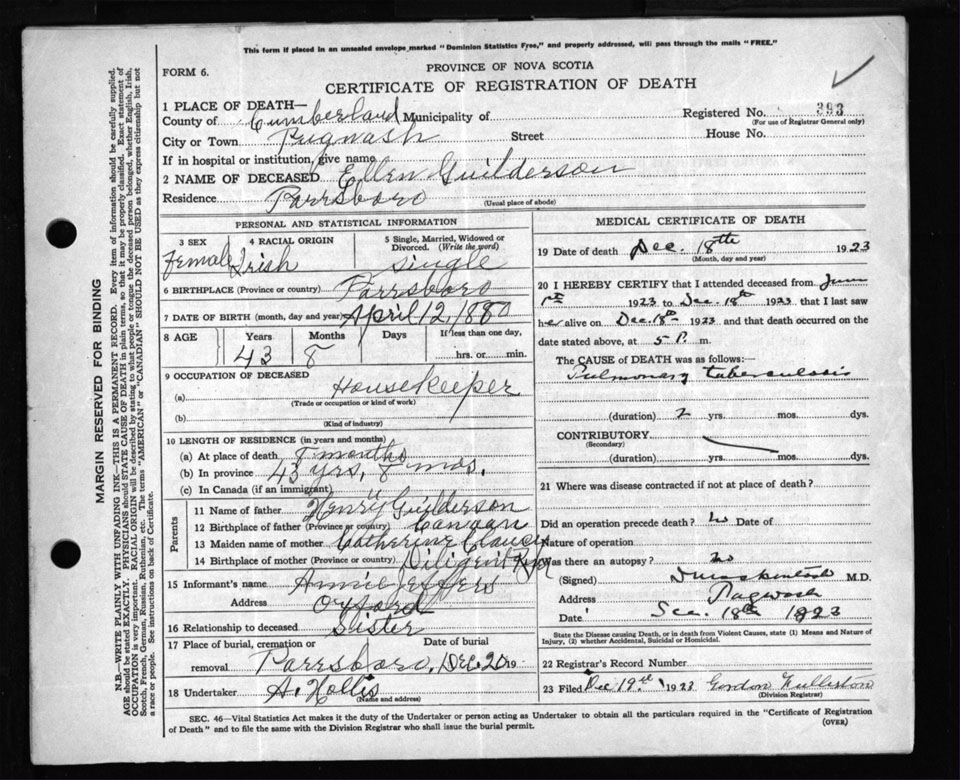 This form if placed in an unsealed envelope marked "Dominion Statistics Free," and properly addressed, will pass through the mails "FREE."
PROVINCE OF NOVA SCOTIA
FORM 6.
CERTIFICATE OF REGISTRATION OF DEATH
1 PLACE OF DEATH—
County of Cumberland Municipality of
Registered No. 393
(For use of Registrar General only)
City or Town Pugwash Street House No.
If in hospital or institution, give name
2 NAME OF DECEASED Ellen Guilderson
Residence Parrsboro
(Usual place of abode)
PERSONAL AND STATISTICAL INFORMATION
3 SEX
Female
4 RACIAL ORIGIN
Irish
5 Single, Married, Widowed or
Divorced. (Write the word)
Single
6 BIRTHPLACE (Province or country) Parrsboro
7 DATE OF BIRTH (month, day and year) April 12, 1880
8 AGE Years Months Days If less than one day,
43 8 hrs. or min.
9 OCCUPATION OF DECEASED
(a) Housekeeper
(Trade or occupation or kind of work)
(b)
(Kind of industry)
10 LENGTH OF RESIDENCE (in years and months)
(a) At place of death 8 months
(b) In province 43 yrs, 8 mos.
(c) In Canada (if an immigrant) "
Parents
11 Name of father Henry Guilderson
12 Birthplace of father (Province or country) Canaan
13 Maiden name of mother Catherine Clancy
14 Birthplace of mother (Province or country) Diligent River
15 Informant's name Annie Jeffers
Address Oxford
16 Relationship to deceased Sister
17 Place of burial, cremation or Date of burial
removal Parrsboro, Dec. 20 19
18 Undertaker A. Hollis
(Name and address)
MEDICAL CERTIFICATE OF DEATH
19 Date of death Dec. 18th 1923
(Month, day and year)
20 I HEREBY CERTIFY that I attended deceased from June
1st 1923 to Dec. 18th 1923 that I last saw
her alive on Dec. 18th 1923 and that death occurred on the
date stated above, at 5 P. m.
The CAUSE of DEATH was as follows:—
Pulmonary tuberculosis
(duration) 2 yrs. mos. dys.
CONTRIBUTORY
(Secondary)
(duration) yrs. mos. dys.
21 Where was disease contracted if not at place of death?
Did an operation precede death? no Date of
Nature of operation
Was there an autopsy? no
(Signed) M.D.
Address Pugwash
Date Dec. 18th 1923
State the Disease causing Death, or in death from Violent Causes, state (1) Means and Nature of
Injury, (2) whether Accidental, Suicidal or Homicidal.
22 Registrar's Record Number
23 Filed Dec 19th 1923 Gordon
(Division Registrar)
SEC. 46—Vital Statistics Act makes it the duty of the Undertaker or person acting as Undertaker to obtain all the particulars required in the "Certificate of Registration
of Death" and to file the same with the Division Registrar who shall issue the burial permit.
(OVER)
MARGIN RESERVED FOR BINDING
N.B.—WRITE PLAINLY WITH UNFADING INK—THIS IS A PERMANENT RECORD. Every item of information should be carefully supplied.
AGE should be stated EXACTLY. PHYSICIANS should STATE CAUSE OF DEATH in plain terms, so that it may be properly classified. Exact statement of
OCCUPATION is very important. RACIAL ORIGIN will be described by stating to what people or tongue the deceased person belonged, whether English, Irish,
Scotch, French, German, Russian, Ruthenian, etc. The terms "AMERICAN" or "CANADIAN" SHOULD NOT BE USED as they express citizenship but not
a race or people. See instructions on back of Certificate.